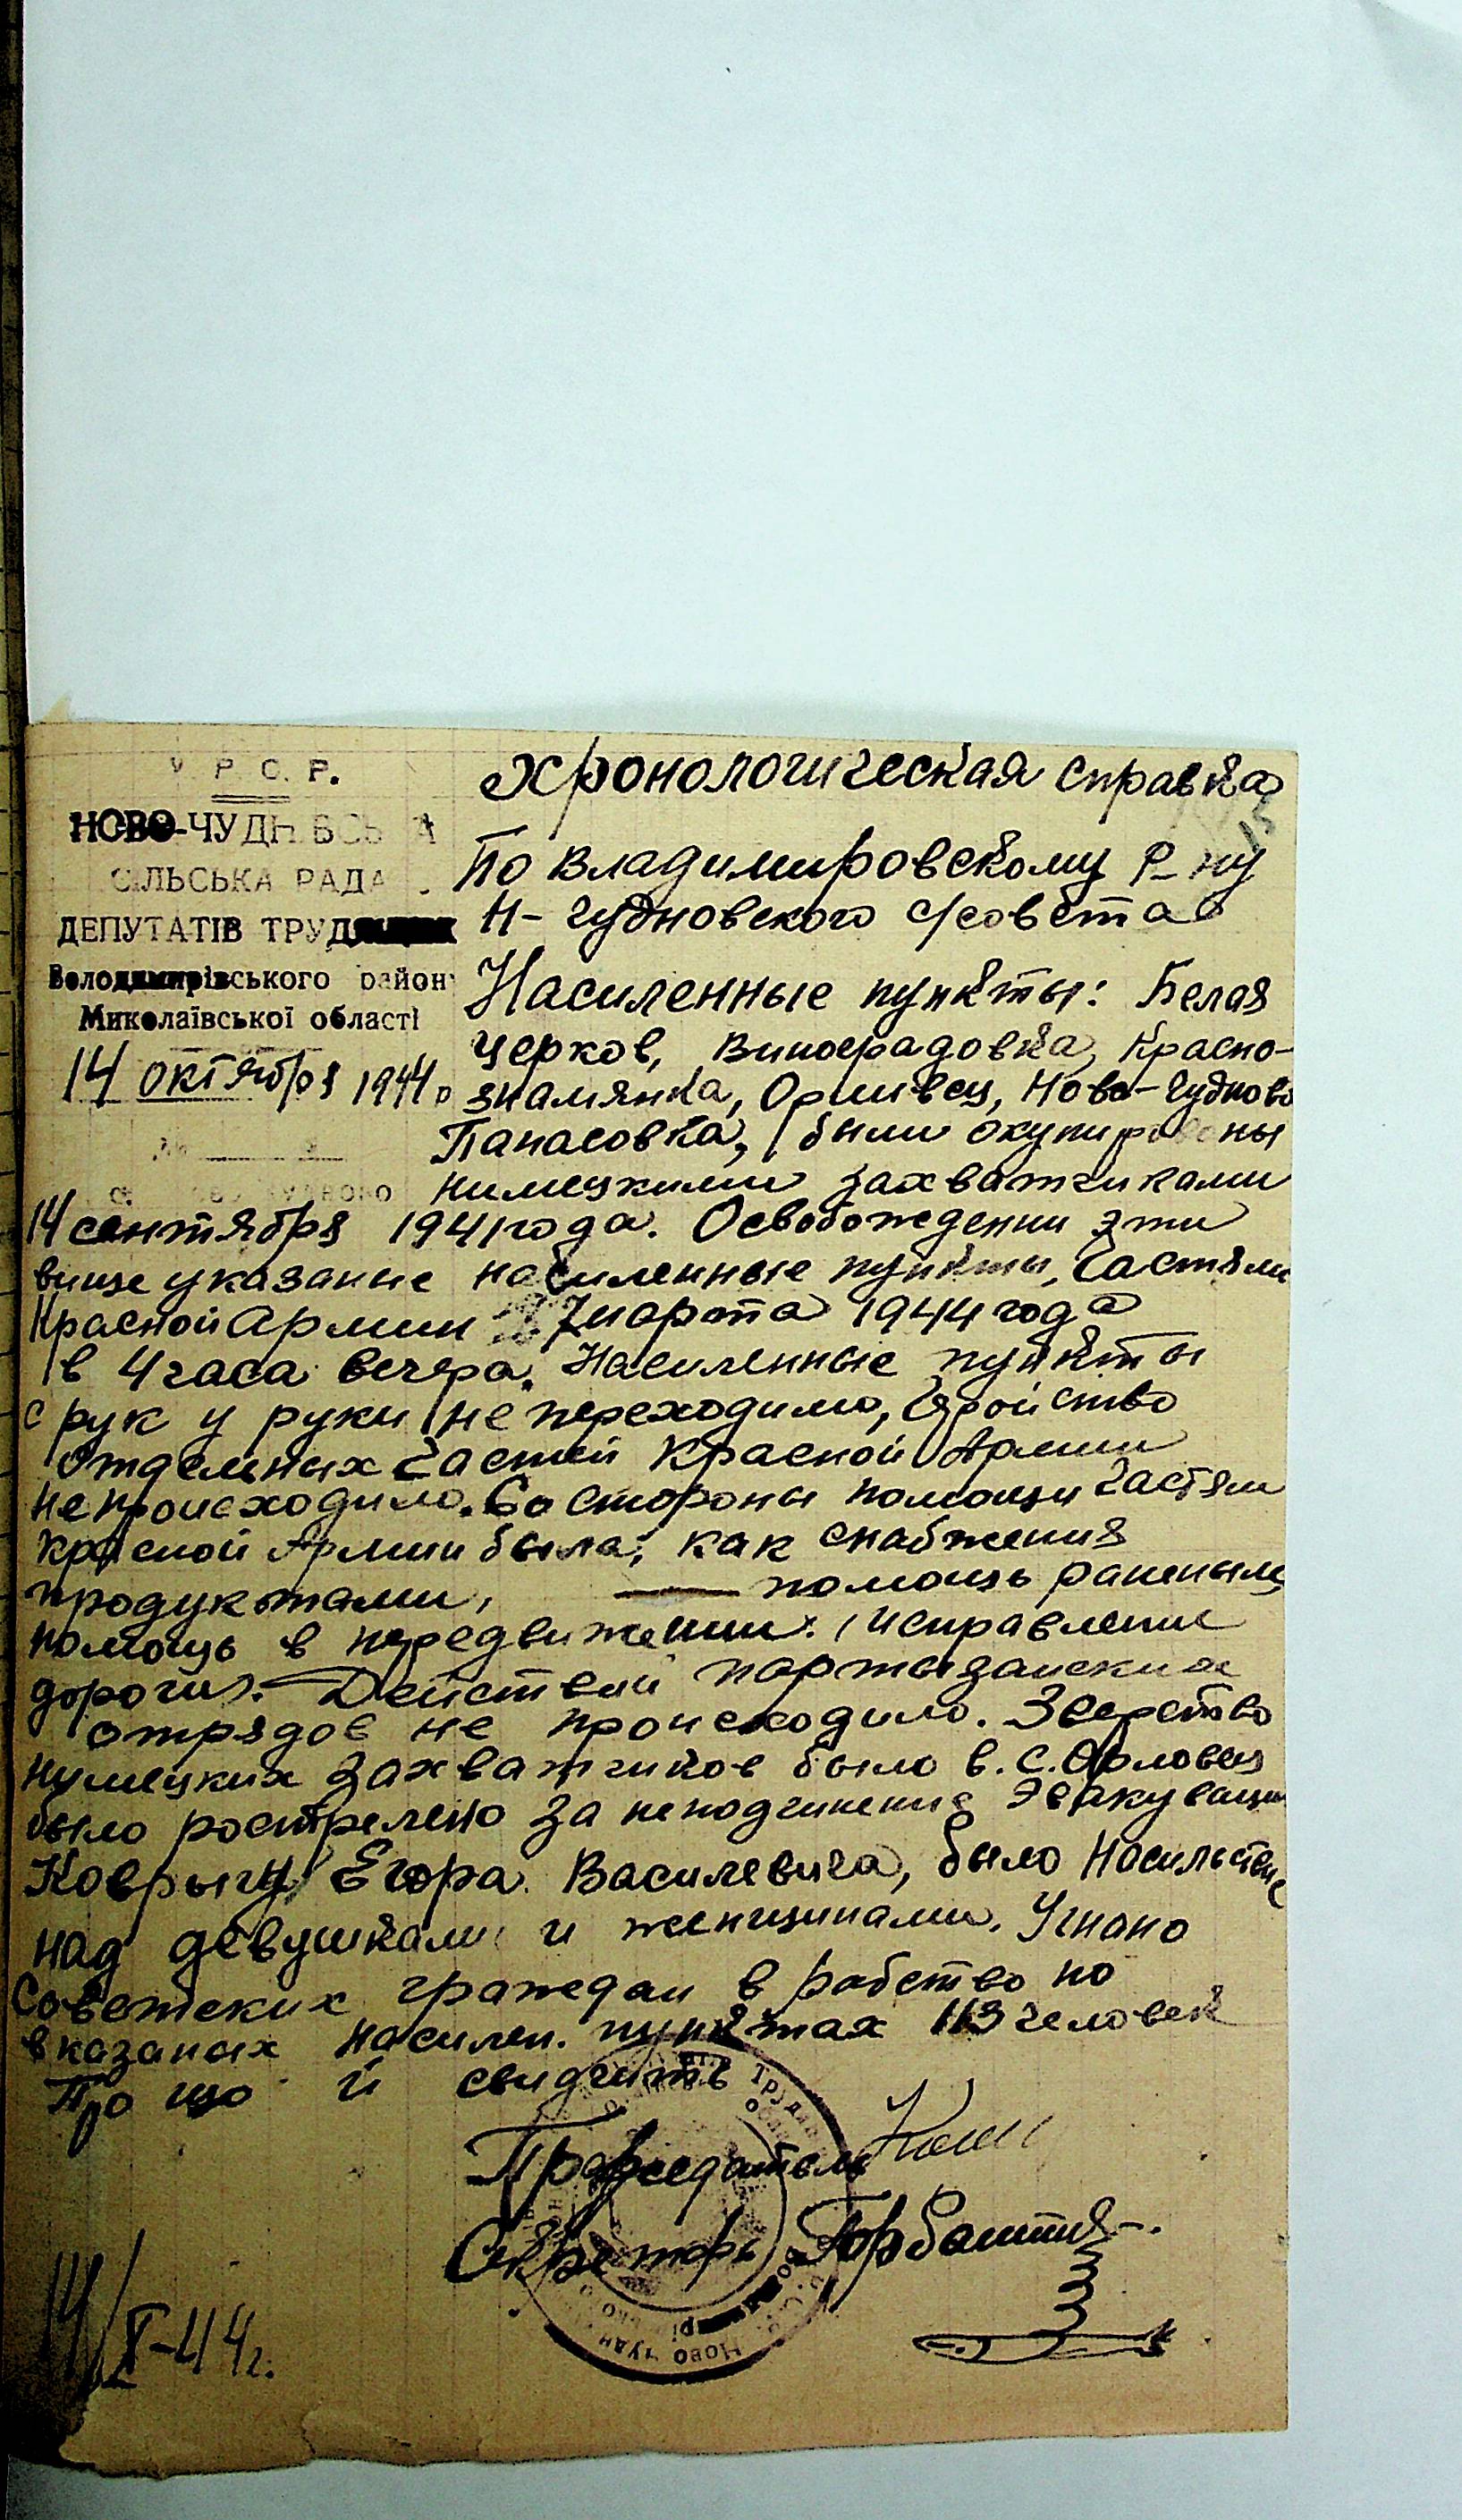 У. Р. С. Р.
НОВО-ЧУДН
СІЛЬСЬКА РАДА
ДЕПУТАТІВ ТРУД
Володимирівського район
Миколаївської області
14 октября 1944 р
Хронологическая справка
15
По Владимировскому р-ну
Н-Чудновского с/совета
Насиленные пункты: Белая
Церков, Виноградовка, Красно-
знамянка, Орливец, Ново-Чудново
Панасовка, были окупированы
нимецкими захватчиками
14 сентября 1941 года. Освобождении эти
више указание насиленные пункты, Частями
Красной Армии 7 марта 1944 года
в 4 часа вечера. Насиленные пункты
с рук у руки не переходило, Геройство
отдельных Частей Красной Армии
не происходило. Со стороны помощи Частям
Красной Армии была; как снабжения
продуктами, помощь раненым
помощь в передвижении. исправлении
дорогих. Действий партызанских
отрядов не происходило. Зверство
нимецких захватчиков было в. с. Орловец
было рострелено за неподчинение эвакуваци
Коврыгу Егора Василевича, было Насильствие
над девушками и женщинами. Угнано
Советских граждан в рабство по
вказаных насилен. пунктах 113 человек
Про що й свидчить
Председатель
Секретарь Горбаттюк.
Труд
Ново Чудн
14/X-44г.